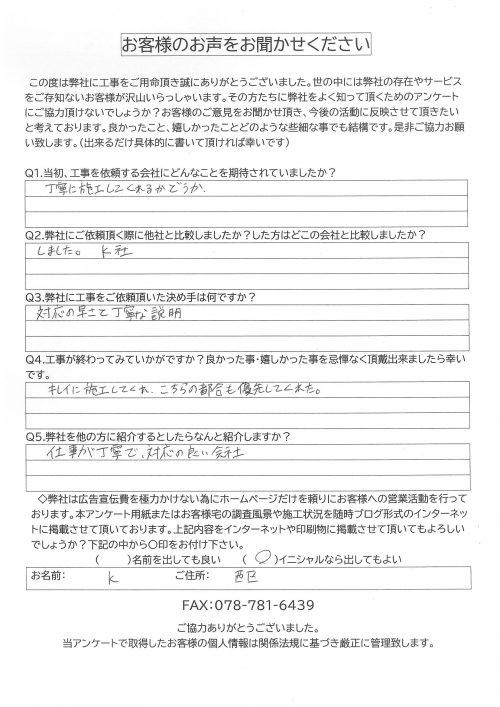 お客様のお声をお聞かせください
この度は弊社に工事をご用命頂き誠にありがとうございました。世の中には弊社の存在やサービス
をご存知ないお客様が沢山いらっしゃいます。その方たちに弊社をよく知って頂くためのアンケート
にご協力頂けないでしょうか?お客様のご意見をお聞かせ頂き、今後の活動に反映させて頂きたい
と考えております。良かったこと、嬉しかったことどのような些細な事でも結構です。是非ご協力お願
い致します。(出来るだけ具体的に書いて頂ければ幸いです)
Q1.当初、工事を依頼する会社にどんなことを期待されていましたか?
丁寧に施工してくれるかどうか.
Q2.弊社にご依頼頂く際に他社と比較しましたか?した方はどこの会社と比較しましたか?
しました。 K社
Q3.弊社に工事をご依頼頂いた決め手は何ですか?
対応の早さと丁寧な説明
Q4.工事が終わってみていかがですか?良かった事・嬉しかった事を忌憚なく頂戴出来ましたら幸い
です。
キレイに施工してくれ、こちらの都合も優先してくれた。
Q5.弊社を他の方に紹介するとしたらなんと紹介しますか?
仕事が丁寧で、対応の良い会社
◇弊社は広告宣伝費を極力かけない為にホームページだけを頼りにお客様への営業活動を行って
おります。本アンケート用紙またはお客様宅の調査風景や施工状況を随時ブログ形式のインターネッ
トに掲載させて頂いております。上記内容をインターネットや印刷物に掲載させて頂いてもよろしい
でしょうか?下記の中から〇印をお付け下さい。
( )名前を出しても良い (〇)イニシャルなら出してもよい
お名前: K ご住所:
FAX:078-781-6439
ご協力ありがとうございました。
当アンケートで取得したお客様の個人情報は関係法規に基づき厳正に管理致します。